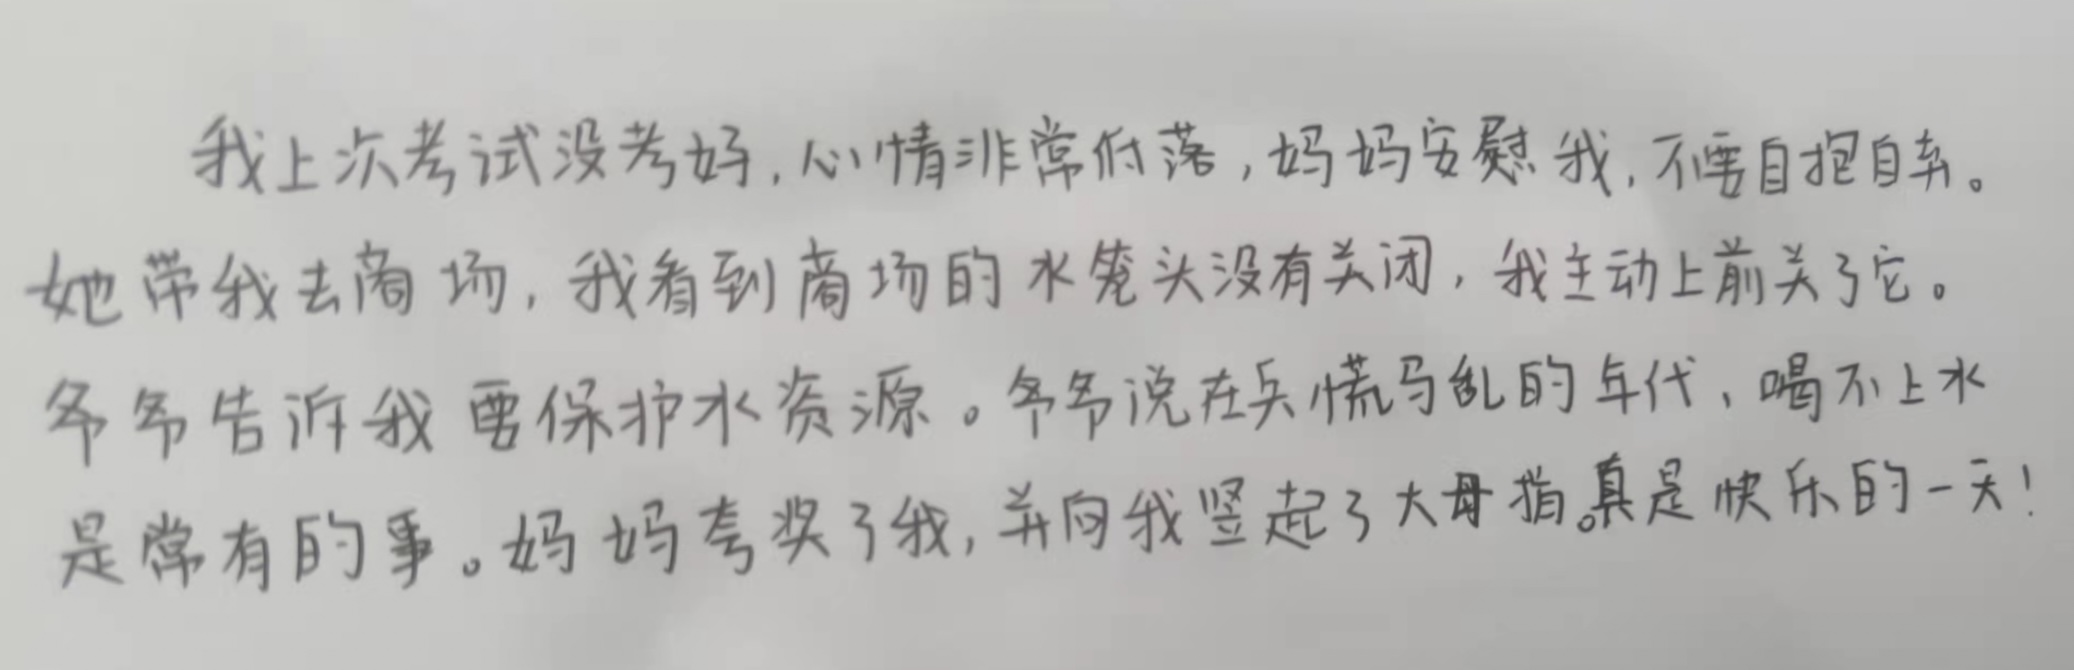 我上次考试没考好，心情非常付落，妈妈安慰我，不要自抱自弃。
她带我去商场，我看到商场的水笼头没有关闭，我主动上前关了它。
爷爷告诉我要保护水资源。爷爷说在兵慌马乱的年代，喝不上水
是常有的事。妈妈夸奖了我，并向我竖起了大母指。真是快乐的一天！